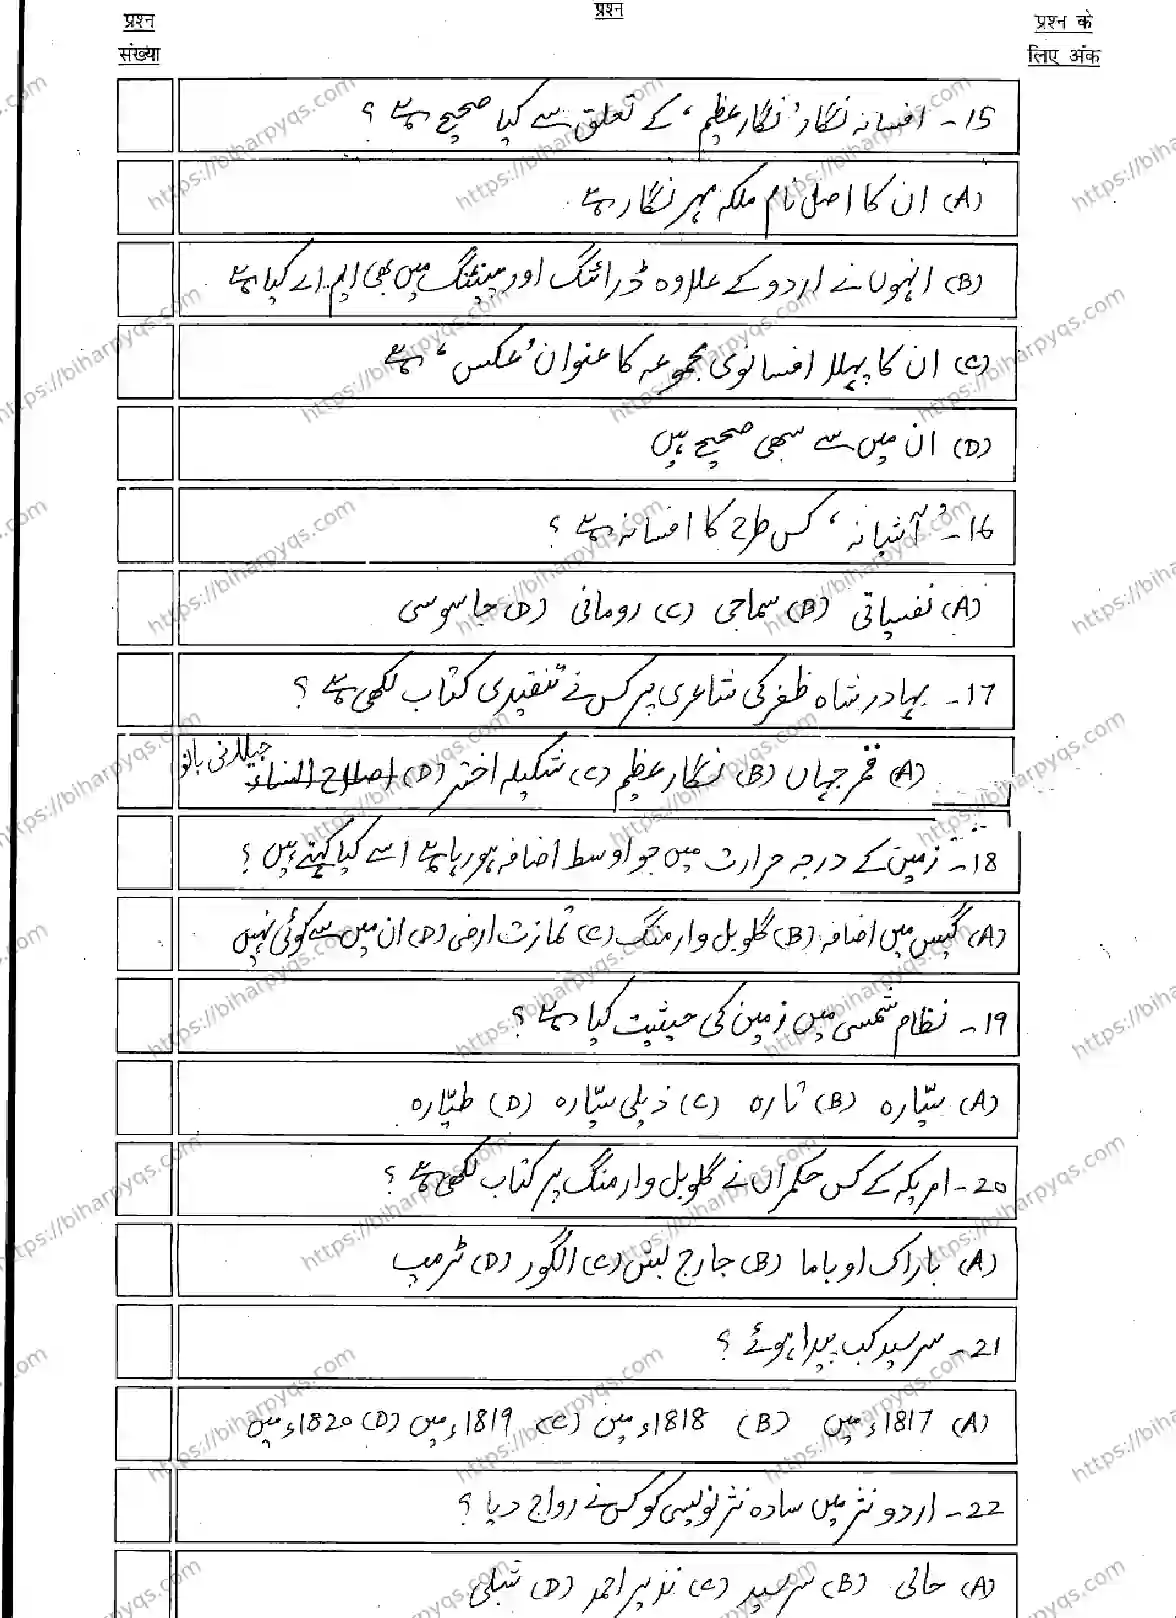 प्रश्न
संख्या
प्रश्न
प्रश्न के
लिए अंक
15- افسانہ نگار 'نگار عظیم' کے تعلق سے کیا صحیح ہے؟
(A) ان کا اصل نام ملکہ مہر نگار ہے
(B) انہوں نے اردو کے علاوہ ڈرائنگ اور پینٹنگ میں بھی ایم.اے کیا ہے
(C) ان کا پہلا افسانوی مجموعہ کا عنوان 'عکس' ہے
(D) ان میں سے سبھی صحیح ہیں
16- 'آشیانہ' کس طرح کا افسانہ ہے؟
(A) نفسیاتی (B) سماجی (C) رومانی (D) جاسوسی
17- بہادر شاہ ظفر کی شاعری پر کس نے تنقیدی کتاب لکھی ہے؟
(A) قمر جہاں (B) نگار عظیم (C) شکیلہ اختر (D) اصلاح النساء جیلانی بانو
18- زمین کے درجہ حرارت میں جو اوسط اضافہ ہو رہا ہے اسے کیا کہتے ہیں؟
(A) گیس میں اضافہ (B) گلوبل وارمنگ (C) تمازت ارضی (D) ان میں سے کوئی نہیں
19- نظام شمسی میں زمین کی حیثیت کیا ہے؟
(A) سیّارہ (B) تارہ (C) ذیلی سیّارہ (D) طیّارہ
20- امریکہ کے کس حکمراں نے گلوبل وارمنگ پر کتاب لکھی ہے؟
(A) باراک اوباما (B) جارج بش (C) الگور (D) ٹرمپ
21- سرسید کب پیدا ہوئے؟
(A) 1817ء میں (B) 1818ء میں (C) 1819ء میں (D) 1820ء میں
22- اردو نثر میں سادہ نثر نویسی کو کس نے رواج دیا؟
(A) حالی (B) سرسید (C) نذیر احمد (D) شبلی
https://biharpyqs.com